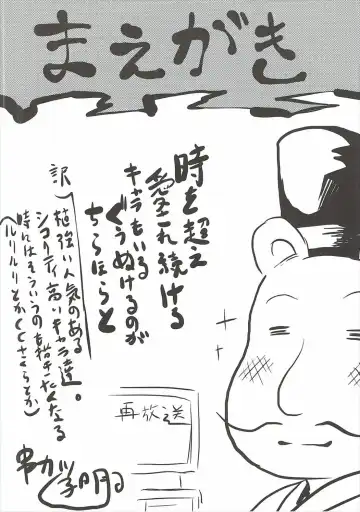 まえがき
時を超え
愛され続ける
キャラもいる
ぐうぬけるのが
ちらほらと
訳 根強い人気のある
シコリティ高いキャラ達。
時にはそういうのを描きたくなる
(ルリルリとかCCさくらとか)
再放送